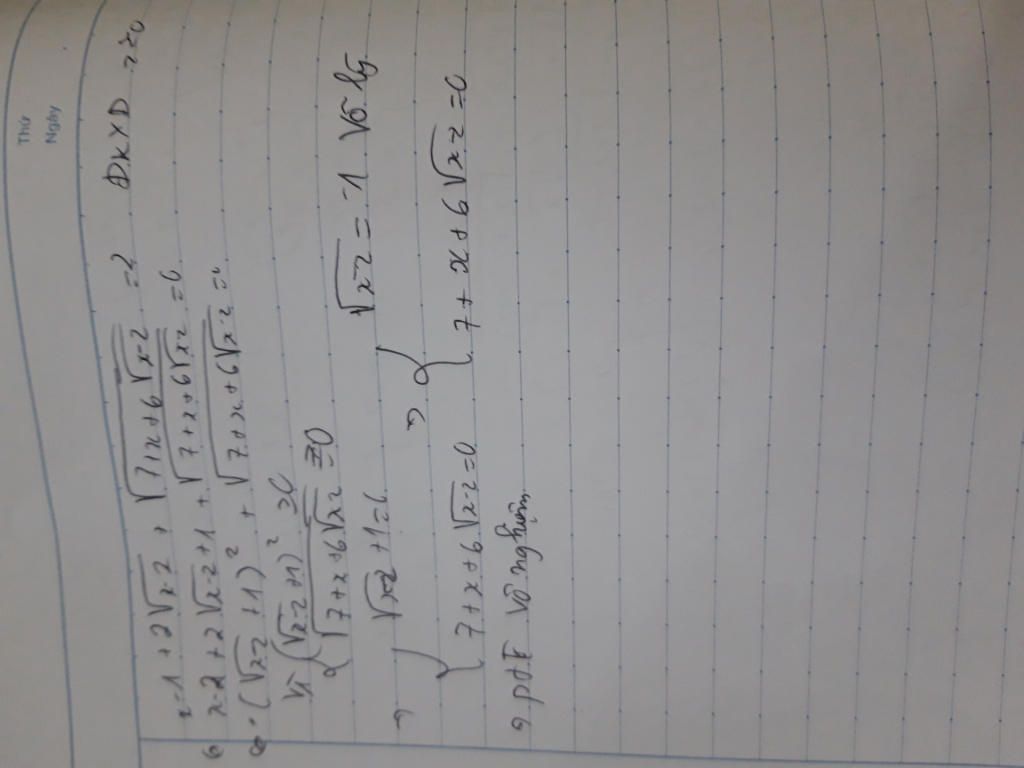 Thứ
Ngày
x-1+2√x-2 + √7+x+6√x-2 = 2 ĐKXĐ
x-2+2√x-2+1+√7+x+6√x-2 =
(√x-2+1)² + √7+x+6√x-2 =
Vì {(√x-2+1)² ≥0
√7+x+6√x-2 ≥0
{√x-2+1= => {√x-2 = -1 Vô lý
7+x+6√x-2=0 7+x+6√x-2=0
Vô nghiệm